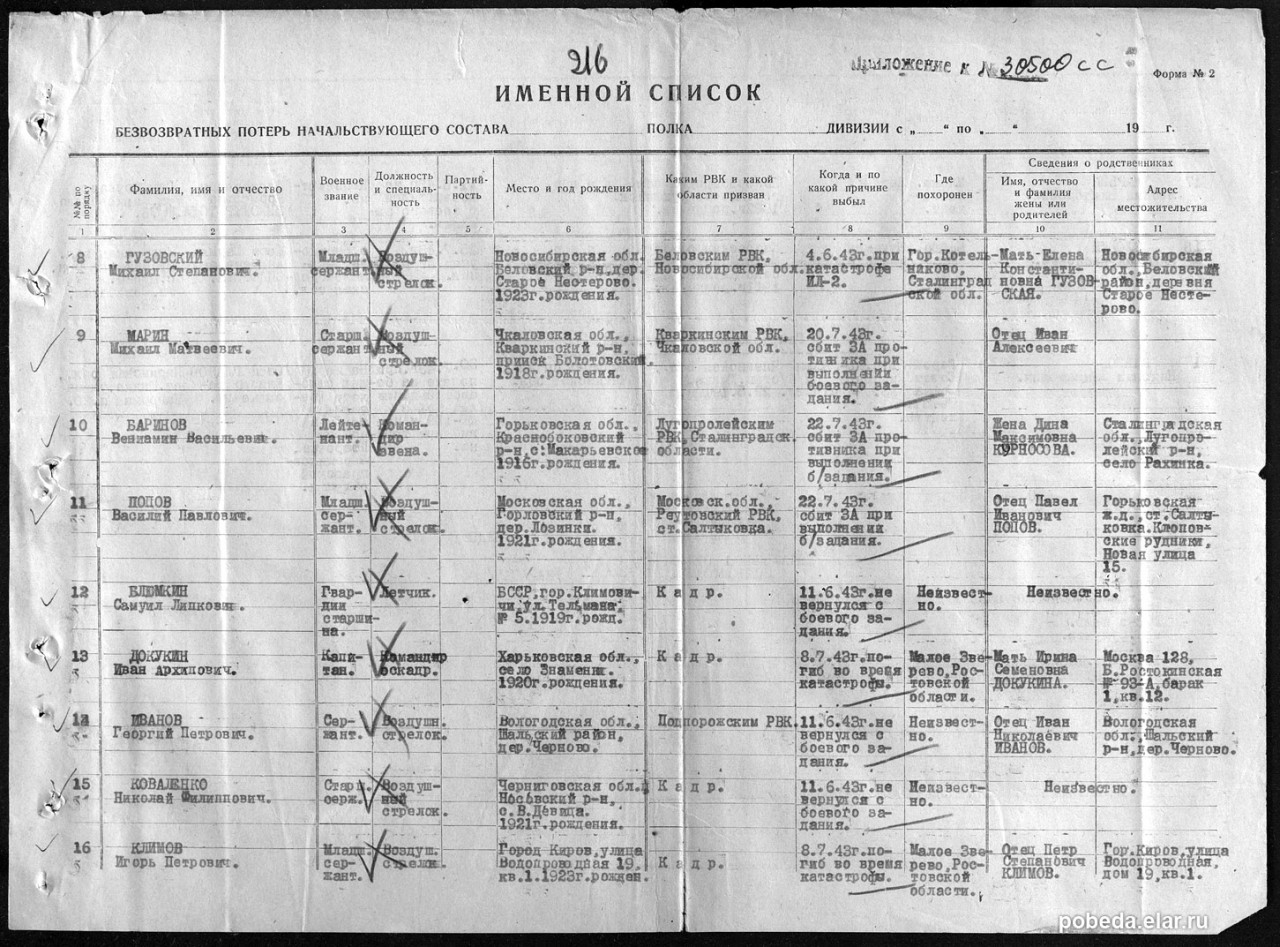 216
Приложение к № 30500 сс
Форма № 2
ИМЕННОЙ СПИСОК
БЕЗВОЗВРАТНЫХ ПОТЕРЬ НАЧАЛЬСТВУЮЩЕГО СОСТАВА ПОЛКА ДИВИЗИИ с „ “ по „ “ 19 г.
№№ по порядку
Фамилия, имя и отчество
Военное звание
Должность и специальность
Партийность
Место и год рождения
Каким РВК и какой области призван
Когда и по какой причине выбыл
Где похоронен
Сведения о родственниках
Имя, отчество и фамилия жены или родителей
Адрес местожительства
1 2 3 4 5 6 7 8 9 10 11
8 ГУЗОВСКИЙ Младш. Воздуш- Новосибирская обл. Беловским РВК, 4.6.43г.при Гор.Котель- Мать-Елена Новосибирская
Михаил Степанович. сержант. ный Беловский р-н,дер. Новосибирской обл. катастрофе никово, Константи- обл.,Беловский
стрелок. Старое Нестерово. ИЛ-2. Сталинград новна ГУЗОВ- район,деревня
1923г.рождения. ской обл. СКАЯ. Старое Несте-
рово.
9 МАРИН Старш. Воздуш- Чкаловская обл., Кваркинским РВК, 20.7.43г. Отец Иван
Михаил Матвеевич. сержант. ный Кваркинский р-н, Чкаловской обл. сбит ЗА про- Алексеевич
стрелок. прииск Болотовский. тивника при
1918г.рождения. выполнении
боевого за-
дания.
10 БАРИНОВ Лейте- Коман- Горьковская обл., Лугопролейским 22.7.43г. Жена Дина Сталинградская
Вениамин Васильевич. нант. дир Краснобоковский РВК,Сталинградск. сбит ЗА про- Максимовна обл.,Лугопро-
звена. р-н,с.Макарьевское области. тивника при КУРНОСОВА. лейский р-н,
1916г.рождения. выполнении село Рахинка.
б/задания.
11 ПОПОВ Младш. Воздуш- Московская обл., Московск.обл., 22.7.43г. Отец Павел Горьковская
Василий Павлович. сер- ный Горловский р-н, Реутовский РВК, сбит ЗА при Иванович ж.д.,ст.Салты-
жант. стрелок. дер.Лозинки. ст.Салтыковка. выполнении ПОПОВ. ковка.Клопов-
1921г.рождения. б/задания. ские рудники,
Новая улица
15.
12 БЛЮМКИН Гвар- Летчик. БССР,гор.Климови- Кадр. 11.6.43г.не Неизвест- Неизвестно.
Самуил Липкович. дии чи,ул.Тельмана вернулся с но.
старши- № 5.1919г.рожд. боевого за-
на. дания.
13 ДОКУКИН Капи- Командир Харьковская обл., Кадр. 8.7.43г.по- Малое Зве- Мать Ирина Москва 128,
Иван Архипович. тан. эскадр. село Знаменки. гиб во время рево,Рос- Семеновна Б.Ростокинская
1920г.рождения. катастрофы. товской ДОКУКИНА. № 93-А,барак
области. 1,кв.12.
14 ИВАНОВ Сер- Воздушн. Вологодская обл., Подпорожским РВК. 11.6.43г.не Неизвест- Отец Иван Вологодская
Георгий Петрович. жант. стрелок. Шальский район, вернулся с но. Николаевич обл.,Шальский
дер.Черново. боевого за- ИВАНОВ. р-н,дер.Черново.
дания.
15 КОВАЛЕНКО Старш. Воздуш- Черниговская обл. Кадр. 11.6.43г.не Неизвест- Неизвестно.
Николай Филиппович. серж. ный Носовский р-н, вернулся с но.
стрелок. с.В.Девица. боевого за-
1921г.рождения. дания.
16 КЛИМОВ Младш. Воздуш. Город Киров,улица 8.7.43г.по- Малое Зве- Отец Петр Гор.Киров,улица
Игорь Петрович. сер- стрелок. Водопроводная 19, Кадр. гиб во время рево,Рос- Степанович Водопроводная,
жант. кв.1.1923г.рожден. катастрофы. товской КЛИМОВ. дом 19,кв.1.
области.
pobeda.elar.ru